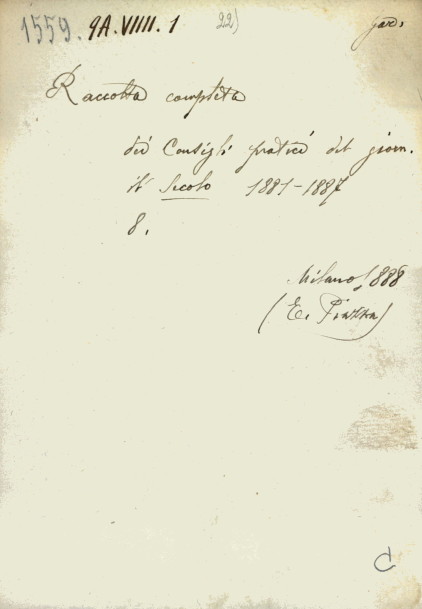 1559. 9A.VIIII.1 22)
Raccolta completa
dei Consigli pratici del giorn.
il Secolo 1881-1887
8.
Milano, 1888
(E. Piazza)
C